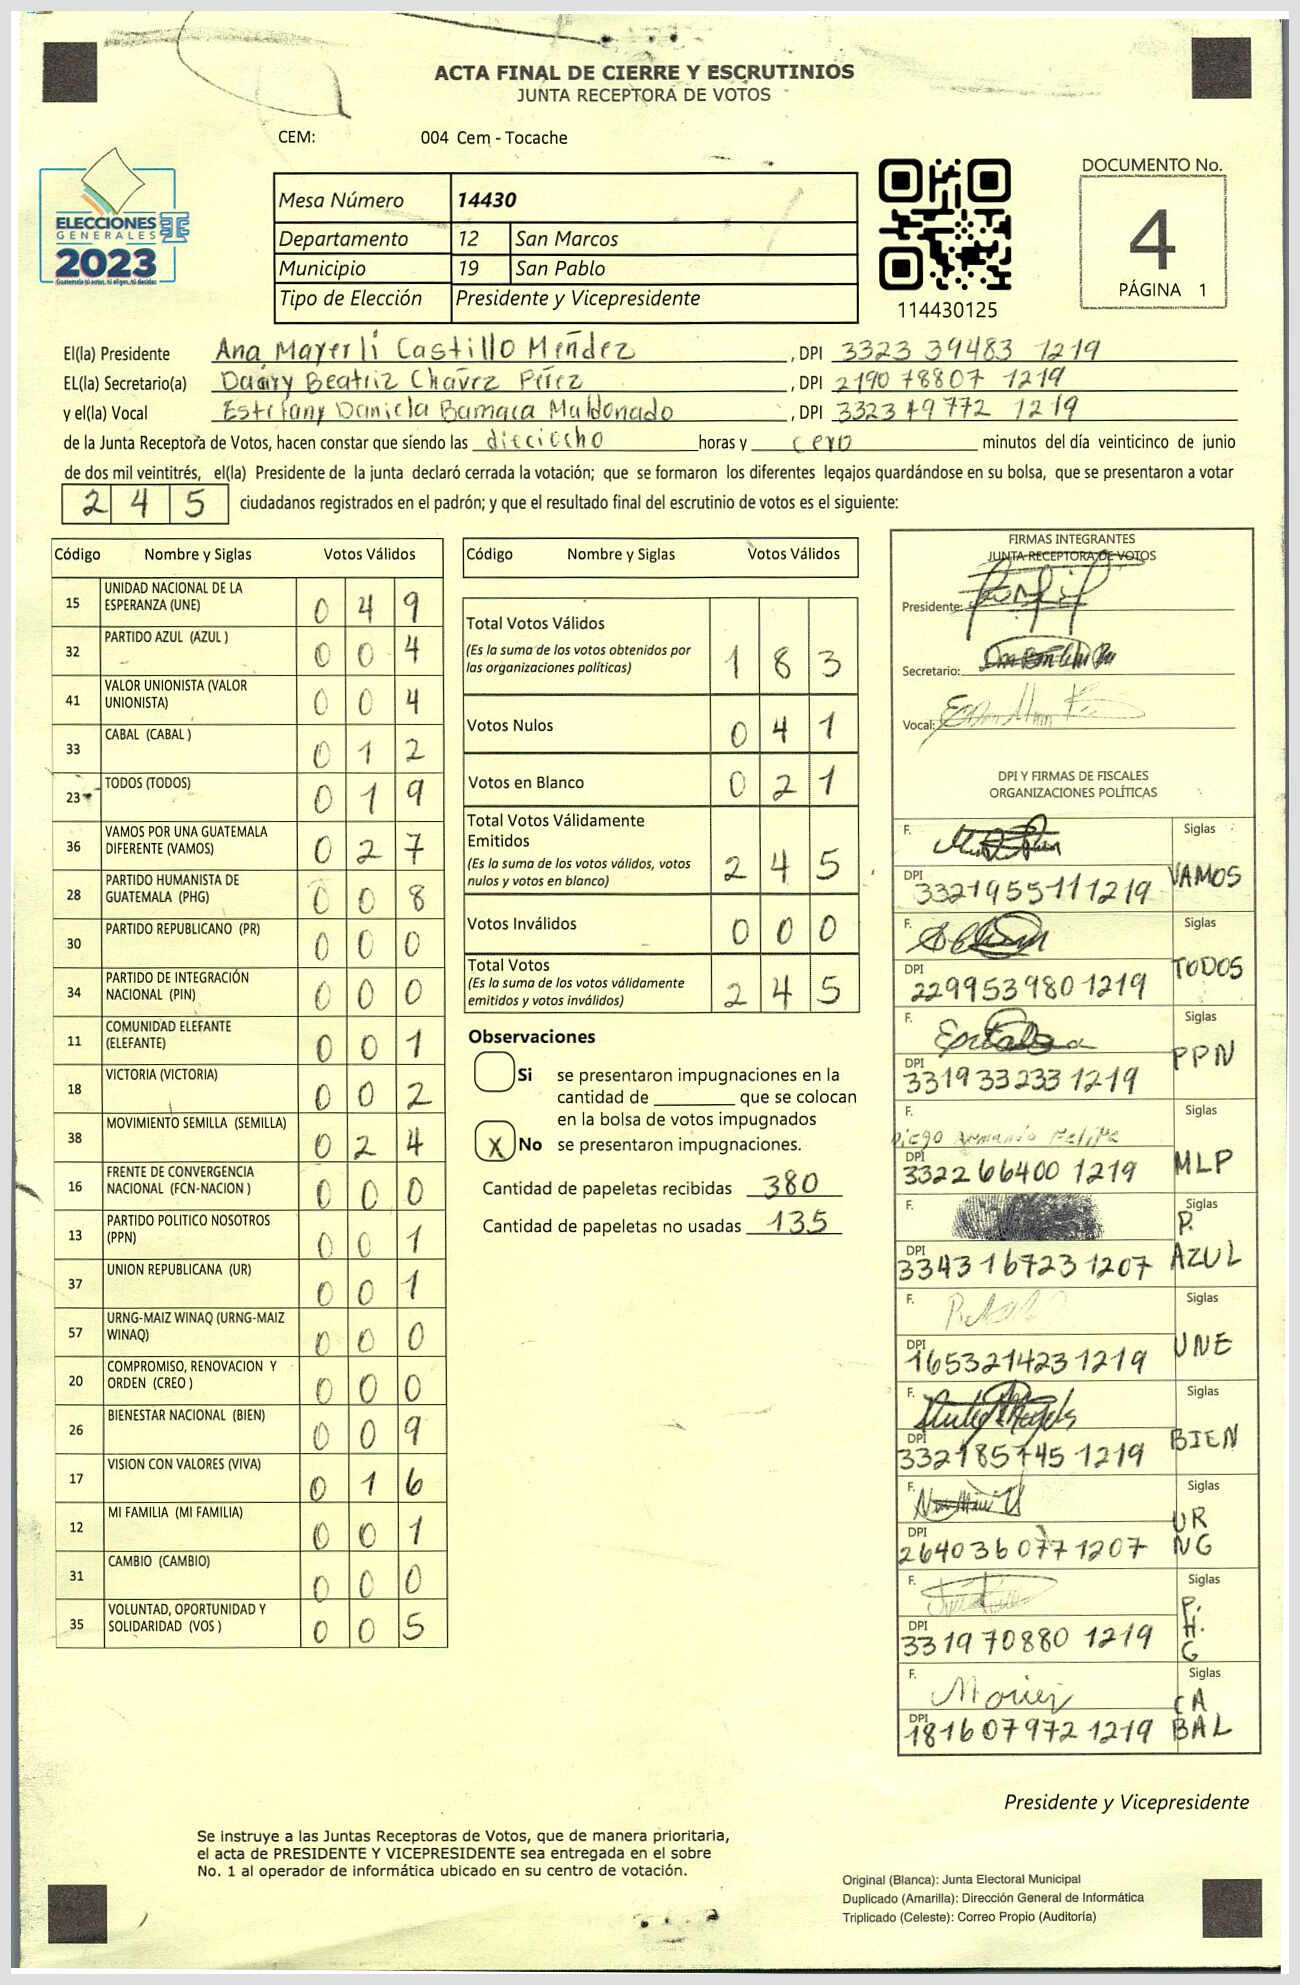 ACTA FINAL DE CIERRE Y ESCRUTINIOS
JUNTA RECEPTORA DE VOTOS
CEM: 004 Cem - Tocache
ELECCIONES
GENERALES
2023
Mesa Número 14430
Departamento 12 San Marcos
Municipio 19 San Pablo
Tipo de Elección Presidente y Vicepresidente
114430125
DOCUMENTO No.
4
PÁGINA 1
El(la) Presidente Ana Mayerli Castillo Méndez, DPI 3323 39483 1219
EL(la) Secretario(a) Beatriz Chávez Pérez, DPI 2190 78807 1219
y el(la) Vocal Estefany Daniela Bamaca Maldonado, DPI 3323 49772 1219
de la Junta Receptora de Votos, hacen constar que siendo las dieciocho horas y cero minutos del día veinticinco de junio
de dos mil veintitrés, el(la) Presidente de la junta declaró cerrada la votación; que se formaron los diferentes legajos quardándose en su bolsa, que se presentaron a votar
245 ciudadanos registrados en el padrón; y que el resultado final del escrutinio de votos es el siguiente:
Código Nombre y Siglas Votos Válidos
15 UNIDAD NACIONAL DE LA ESPERANZA (UNE) 0 4 9
32 PARTIDO AZUL (AZUL ) 0 0 4
41 VALOR UNIONISTA (VALOR UNIONISTA) 0 0 4
33 CABAL (CABAL ) 0 1 2
23 TODOS (TODOS) 0 1 9
36 VAMOS POR UNA GUATEMALA DIFERENTE (VAMOS) 0 2 7
28 PARTIDO HUMANISTA DE GUATEMALA (PHG) 0 0 8
30 PARTIDO REPUBLICANO (PR) 0 0 0
34 PARTIDO DE INTEGRACIÓN NACIONAL (PIN) 0 0 0
11 COMUNIDAD ELEFANTE (ELEFANTE) 0 0 1
18 VICTORIA (VICTORIA) 0 0 2
38 MOVIMIENTO SEMILLA (SEMILLA) 0 2 4
16 FRENTE DE CONVERGENCIA NACIONAL (FCN-NACION ) 0 0 0
13 PARTIDO POLITICO NOSOTROS (PPN) 0 0 1
37 UNION REPUBLICANA (UR) 0 0 1
57 URNG-MAIZ WINAQ (URNG-MAIZ WINAQ) 0 0 0
20 COMPROMISO, RENOVACION Y ORDEN (CREO ) 0 0 0
26 BIENESTAR NACIONAL (BIEN) 0 0 9
17 VISION CON VALORES (VIVA) 0 1 6
12 MI FAMILIA (MI FAMILIA) 0 0 1
31 CAMBIO (CAMBIO) 0 0 0
35 VOLUNTAD, OPORTUNIDAD Y SOLIDARIDAD (VOS ) 0 0 5
Código Nombre y Siglas Votos Válidos
Total Votos Válidos 1 8 3
(Es la suma de los votos obtenidos por
las organizaciones políticas)
Votos Nulos 0 4 1
Votos en Blanco 0 2 1
Total Votos Válidamente
Emitidos 2 4 5
(Es la suma de los votos válidos, votos
nulos y votos en blanco)
Votos Inválidos 0 0 0
Total Votos 2 4 5
(Es la suma de los votos válidamente
emitidos y votos inválidos)
Observaciones
Si se presentaron impugnaciones en la
cantidad de ________ que se colocan
en la bolsa de votos impugnados
X No se presentaron impugnaciones.
Cantidad de papeletas recibidas 380
Cantidad de papeletas no usadas 135
FIRMAS INTEGRANTES
JUNTA RECEPTORA DE VOTOS
Presidente:
Secretario:
Vocal:
DPI Y FIRMAS DE FISCALES
ORGANIZACIONES POLÍTICAS
F. Siglas
DPI 3321955111219 VAMOS
F. Siglas
DPI 2299539801219 TODOS
F. Siglas
DPI 3319332331219 PPN
F. Diego Armando Felipe Siglas
DPI 3322664001219 MLP
F. Siglas
DPI 3343167231207 P. AZUL
F. Siglas
DPI 1653214231219 UNE
F. Siglas
DPI 3321857451219 BIEN
F. Siglas
DPI 2640360771207 URNG
F. Siglas
DPI 3319708801219 P.H.G
F. Siglas
DPI 1816079721219 CABAL
Presidente y Vicepresidente
Se instruye a las Juntas Receptoras de Votos, que de manera prioritaria,
el acta de PRESIDENTE Y VICEPRESIDENTE sea entregada en el sobre
No. 1 al operador de informática ubicado en su centro de votación.
Original (Blanca): Junta Electoral Municipal
Duplicado (Amarilla): Dirección General de Informática
Triplicado (Celeste): Correo Propio (Auditoría)